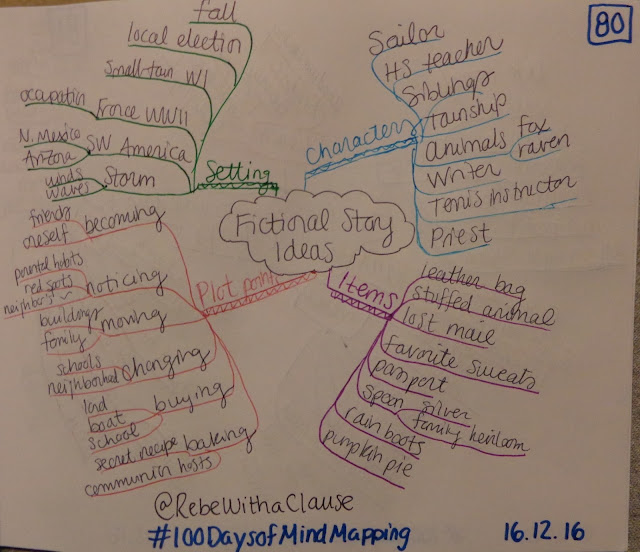 80
Fictional Story
Ideas
Setting
fall
local election
Small-town WI
France WWII
occupation
SW America
N. Mexico
Arizona
Storm
winds
waves
Characters
Sailor
HS teacher
Siblings
Township
animals
fox
raven
Writer
Tennis instructor
Priest
Plot point
becoming
friends
oneself
noticing
parental habits
red spots
neighbors
moving
buildings
family
changing
schools
neighborhood
buying
land
boat
school
baking
secret recipe
communion hosts
Items
leather bag
stuffed animal
lost mail
favorite sweats
passport
spoon
silver
family heirloom
rain boots
pumpkin pie
@RebeWithaClause
#100DaysofMindMapping
16.12.16